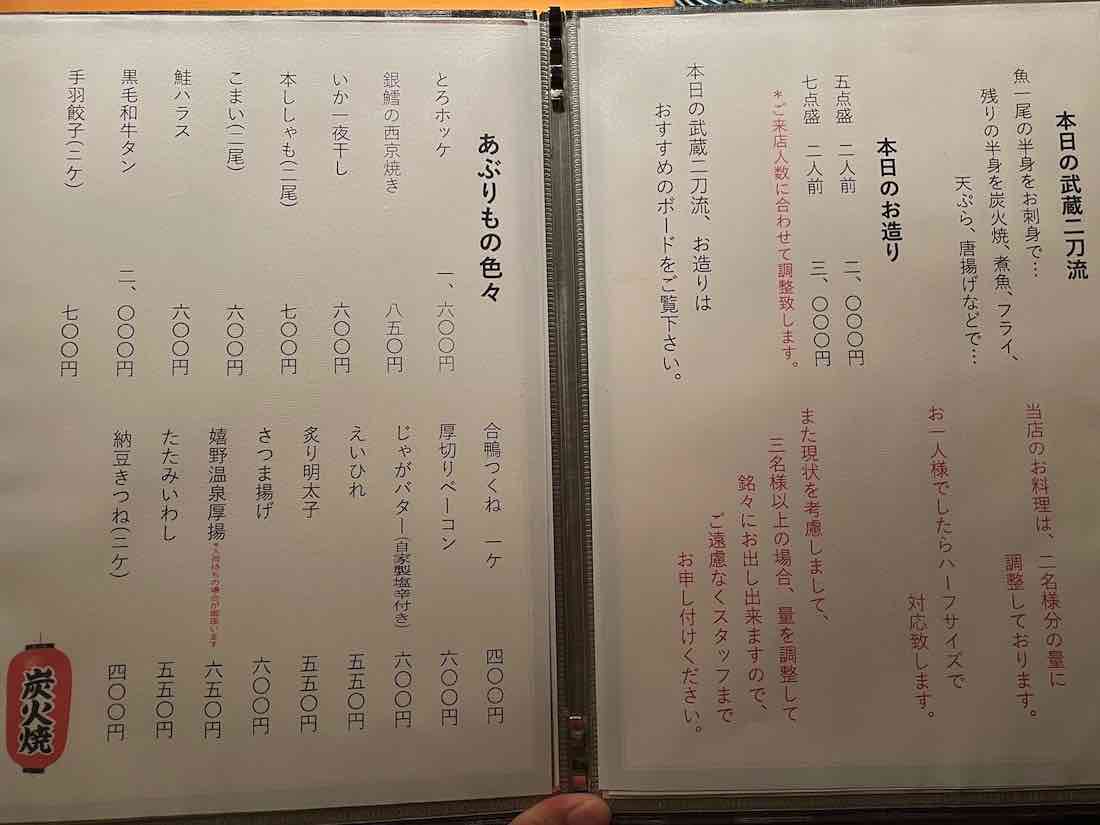 本日の武蔵二刀流
魚一尾の半身をお刺身で…
残りの半身を炭火焼、煮魚、フライ、
天ぷら、唐揚げなどで…
本日のお造り
五点盛 二人前 二、〇〇〇円
七点盛 二人前 三、〇〇〇円
*ご来店人数に合わせて調整致します。
本日の武蔵二刀流、お造りは
おすすめのボードをご覧下さい。
当店のお料理は、二名様分の量に
調整しております。
お一人様でしたらハーフサイズで
対応致します。
また現状を考慮しまして、
三名様以上の場合、量を調整して
銘々にお出し出来ますので、
ご遠慮なくスタッフまで
お申し付けください。
あぶりもの色々
とろホッケ 一、六〇〇円
銀鱈の西京焼き 八五〇円
いか一夜干し 六〇〇円
本ししゃも(二尾) 七〇〇円
こまい(二尾) 六〇〇円
鮭ハラス 六〇〇円
黒毛和牛タン 二、〇〇〇円
手羽餃子(二ケ) 七〇〇円
合鴨つくね 一ケ 四〇〇円
厚切りベーコン 六〇〇円
じゃがバター(自家製塩辛付き) 六〇〇円
えいひれ 五五〇円
炙り明太子 五五〇円
さつま揚げ 六〇〇円
嬉野温泉厚揚 *入荷待ちの場合が御座います 六五〇円
たたみいわし 五五〇円
納豆きつね(二ケ) 四〇〇円
炭火焼